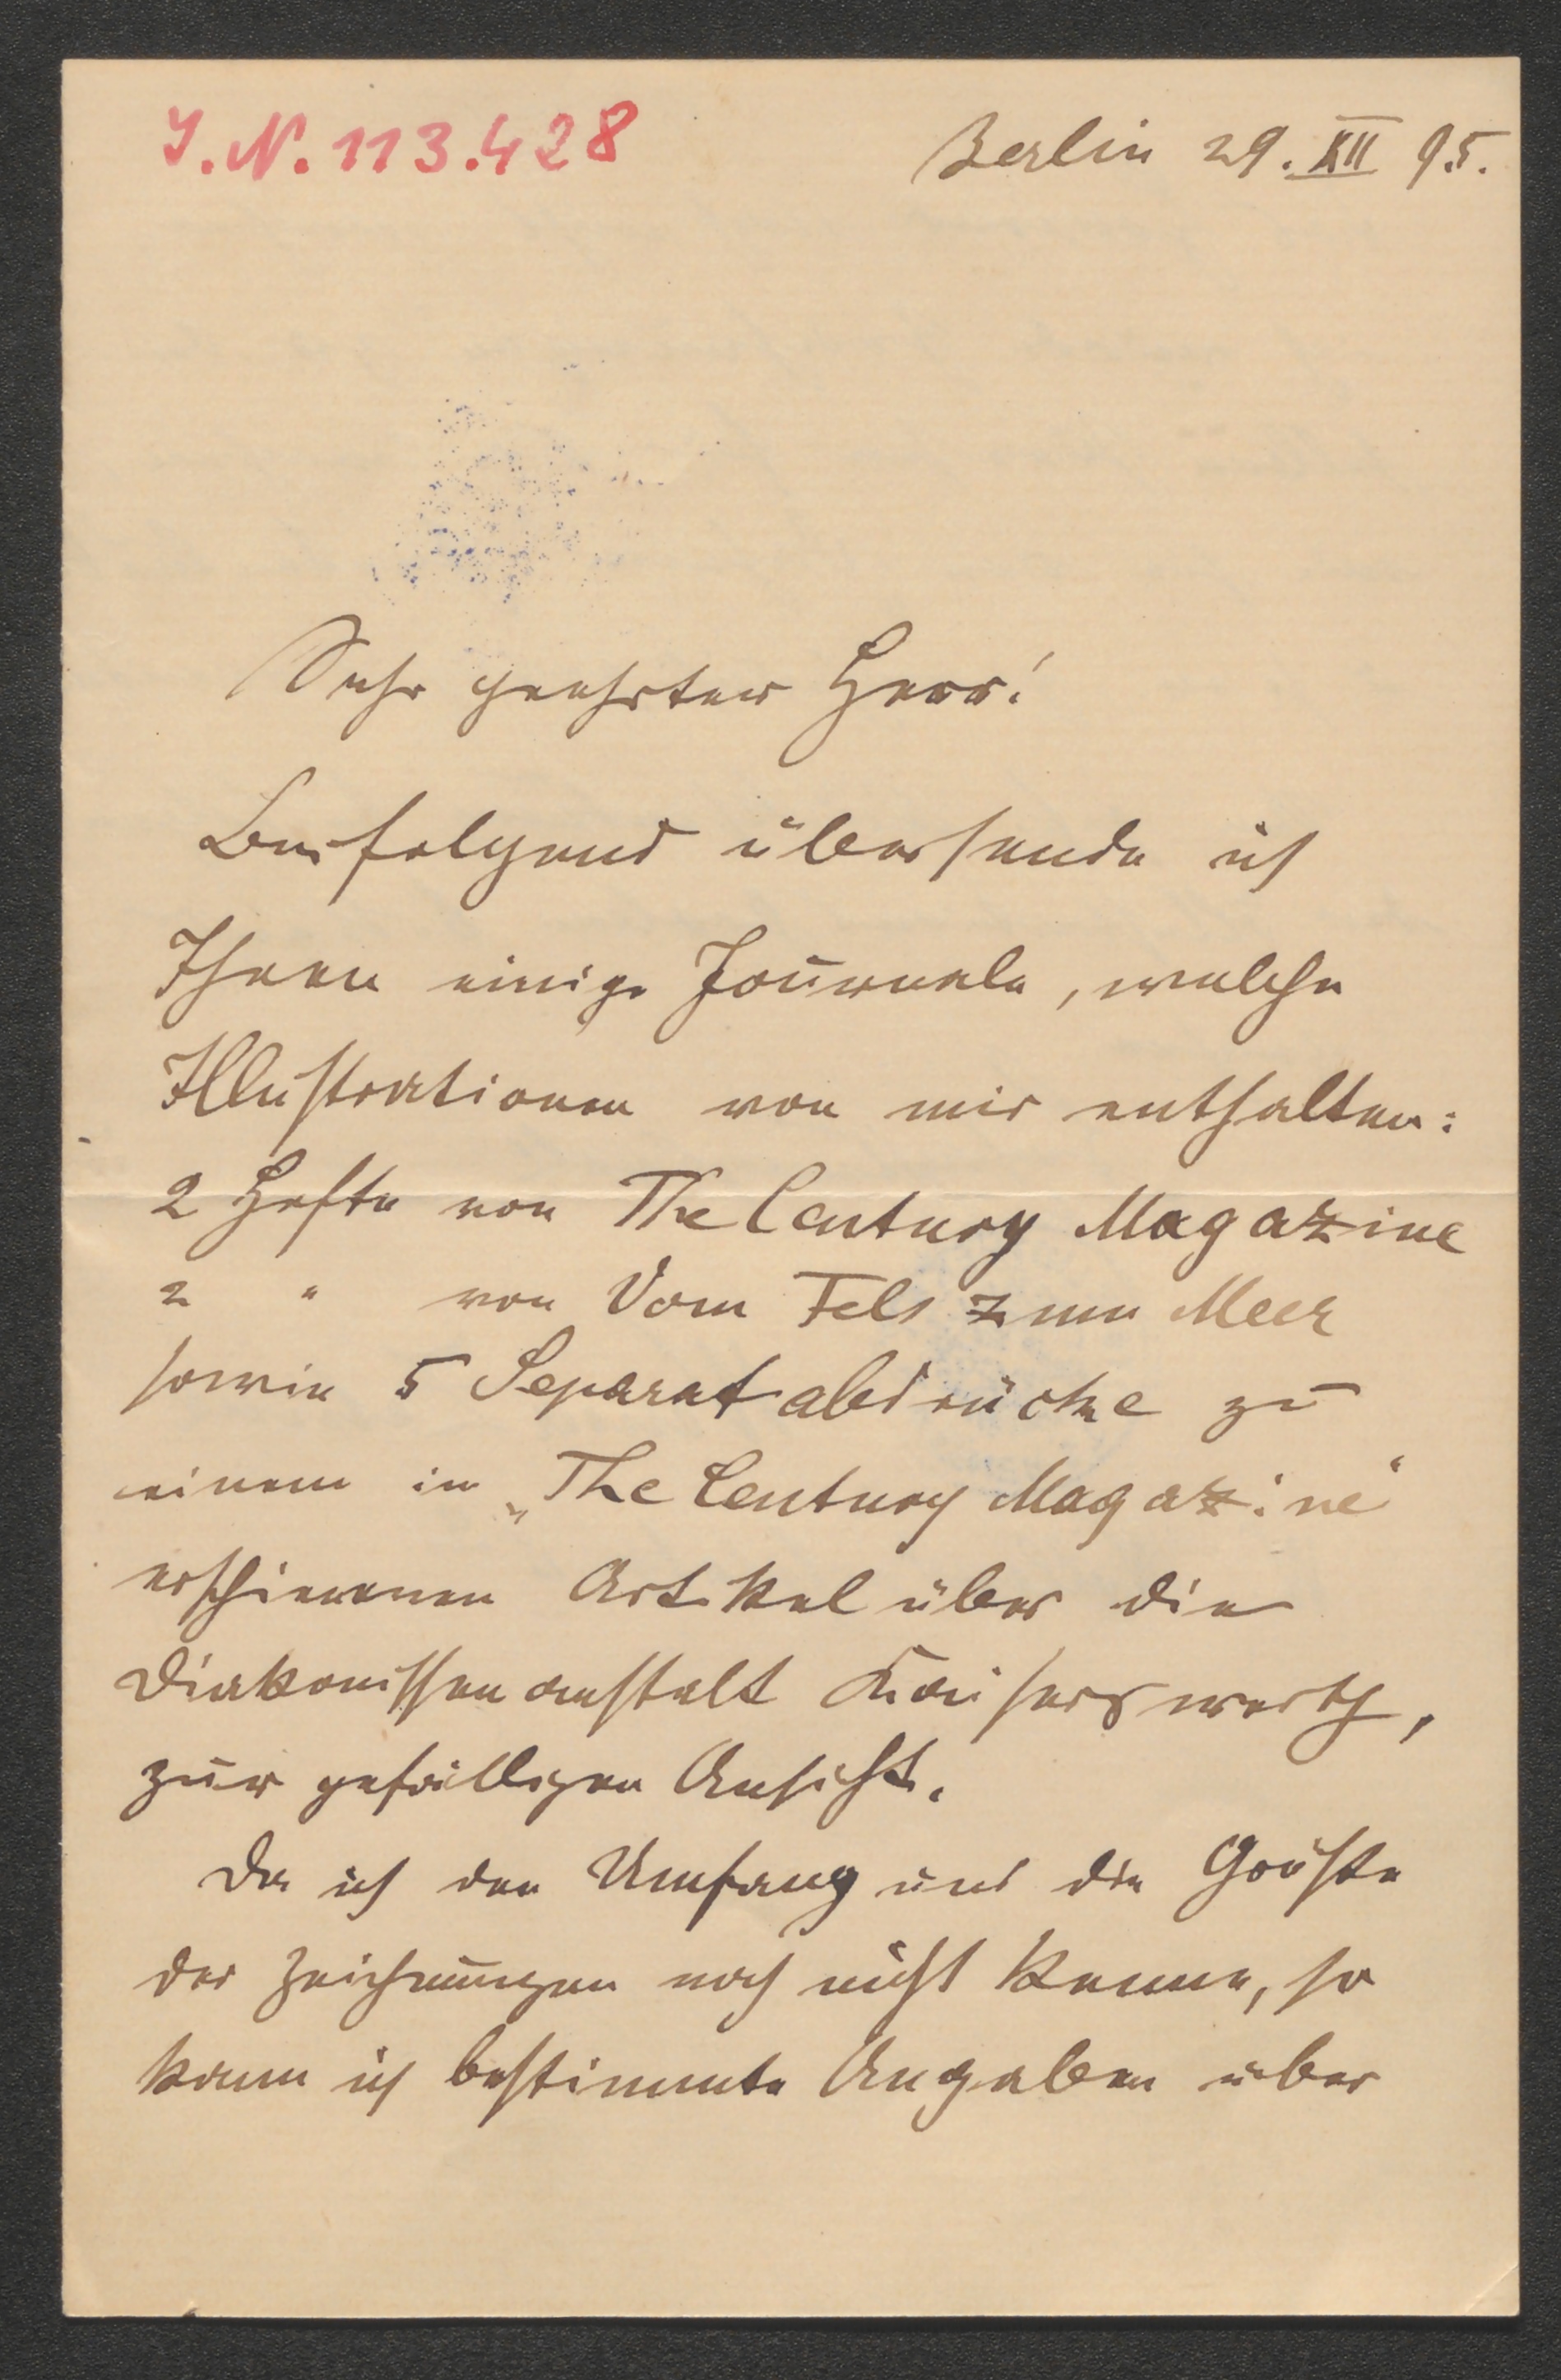 J.N. 113.428
Berlin 29. XII 95.
Sehr geehrter Herr!
Beifolgend übersende ich
Ihnen einige Journale, welche
Illustrationen von mir enthalten:
2 Hefte von The Century Magazine
2 " von Vom Fels zum Meer
sowie 5 Separatabdrücke zu
einem in „The Century Magazine“
erschienenen Artikel über die
Diakonissenanstalt Kaiserswerth,
zur gefälligen Ansicht.
Da ich den Umfang und die Größe
der Zeichnungen noch nicht kenne, so
kann ich bestimmte Angaben über